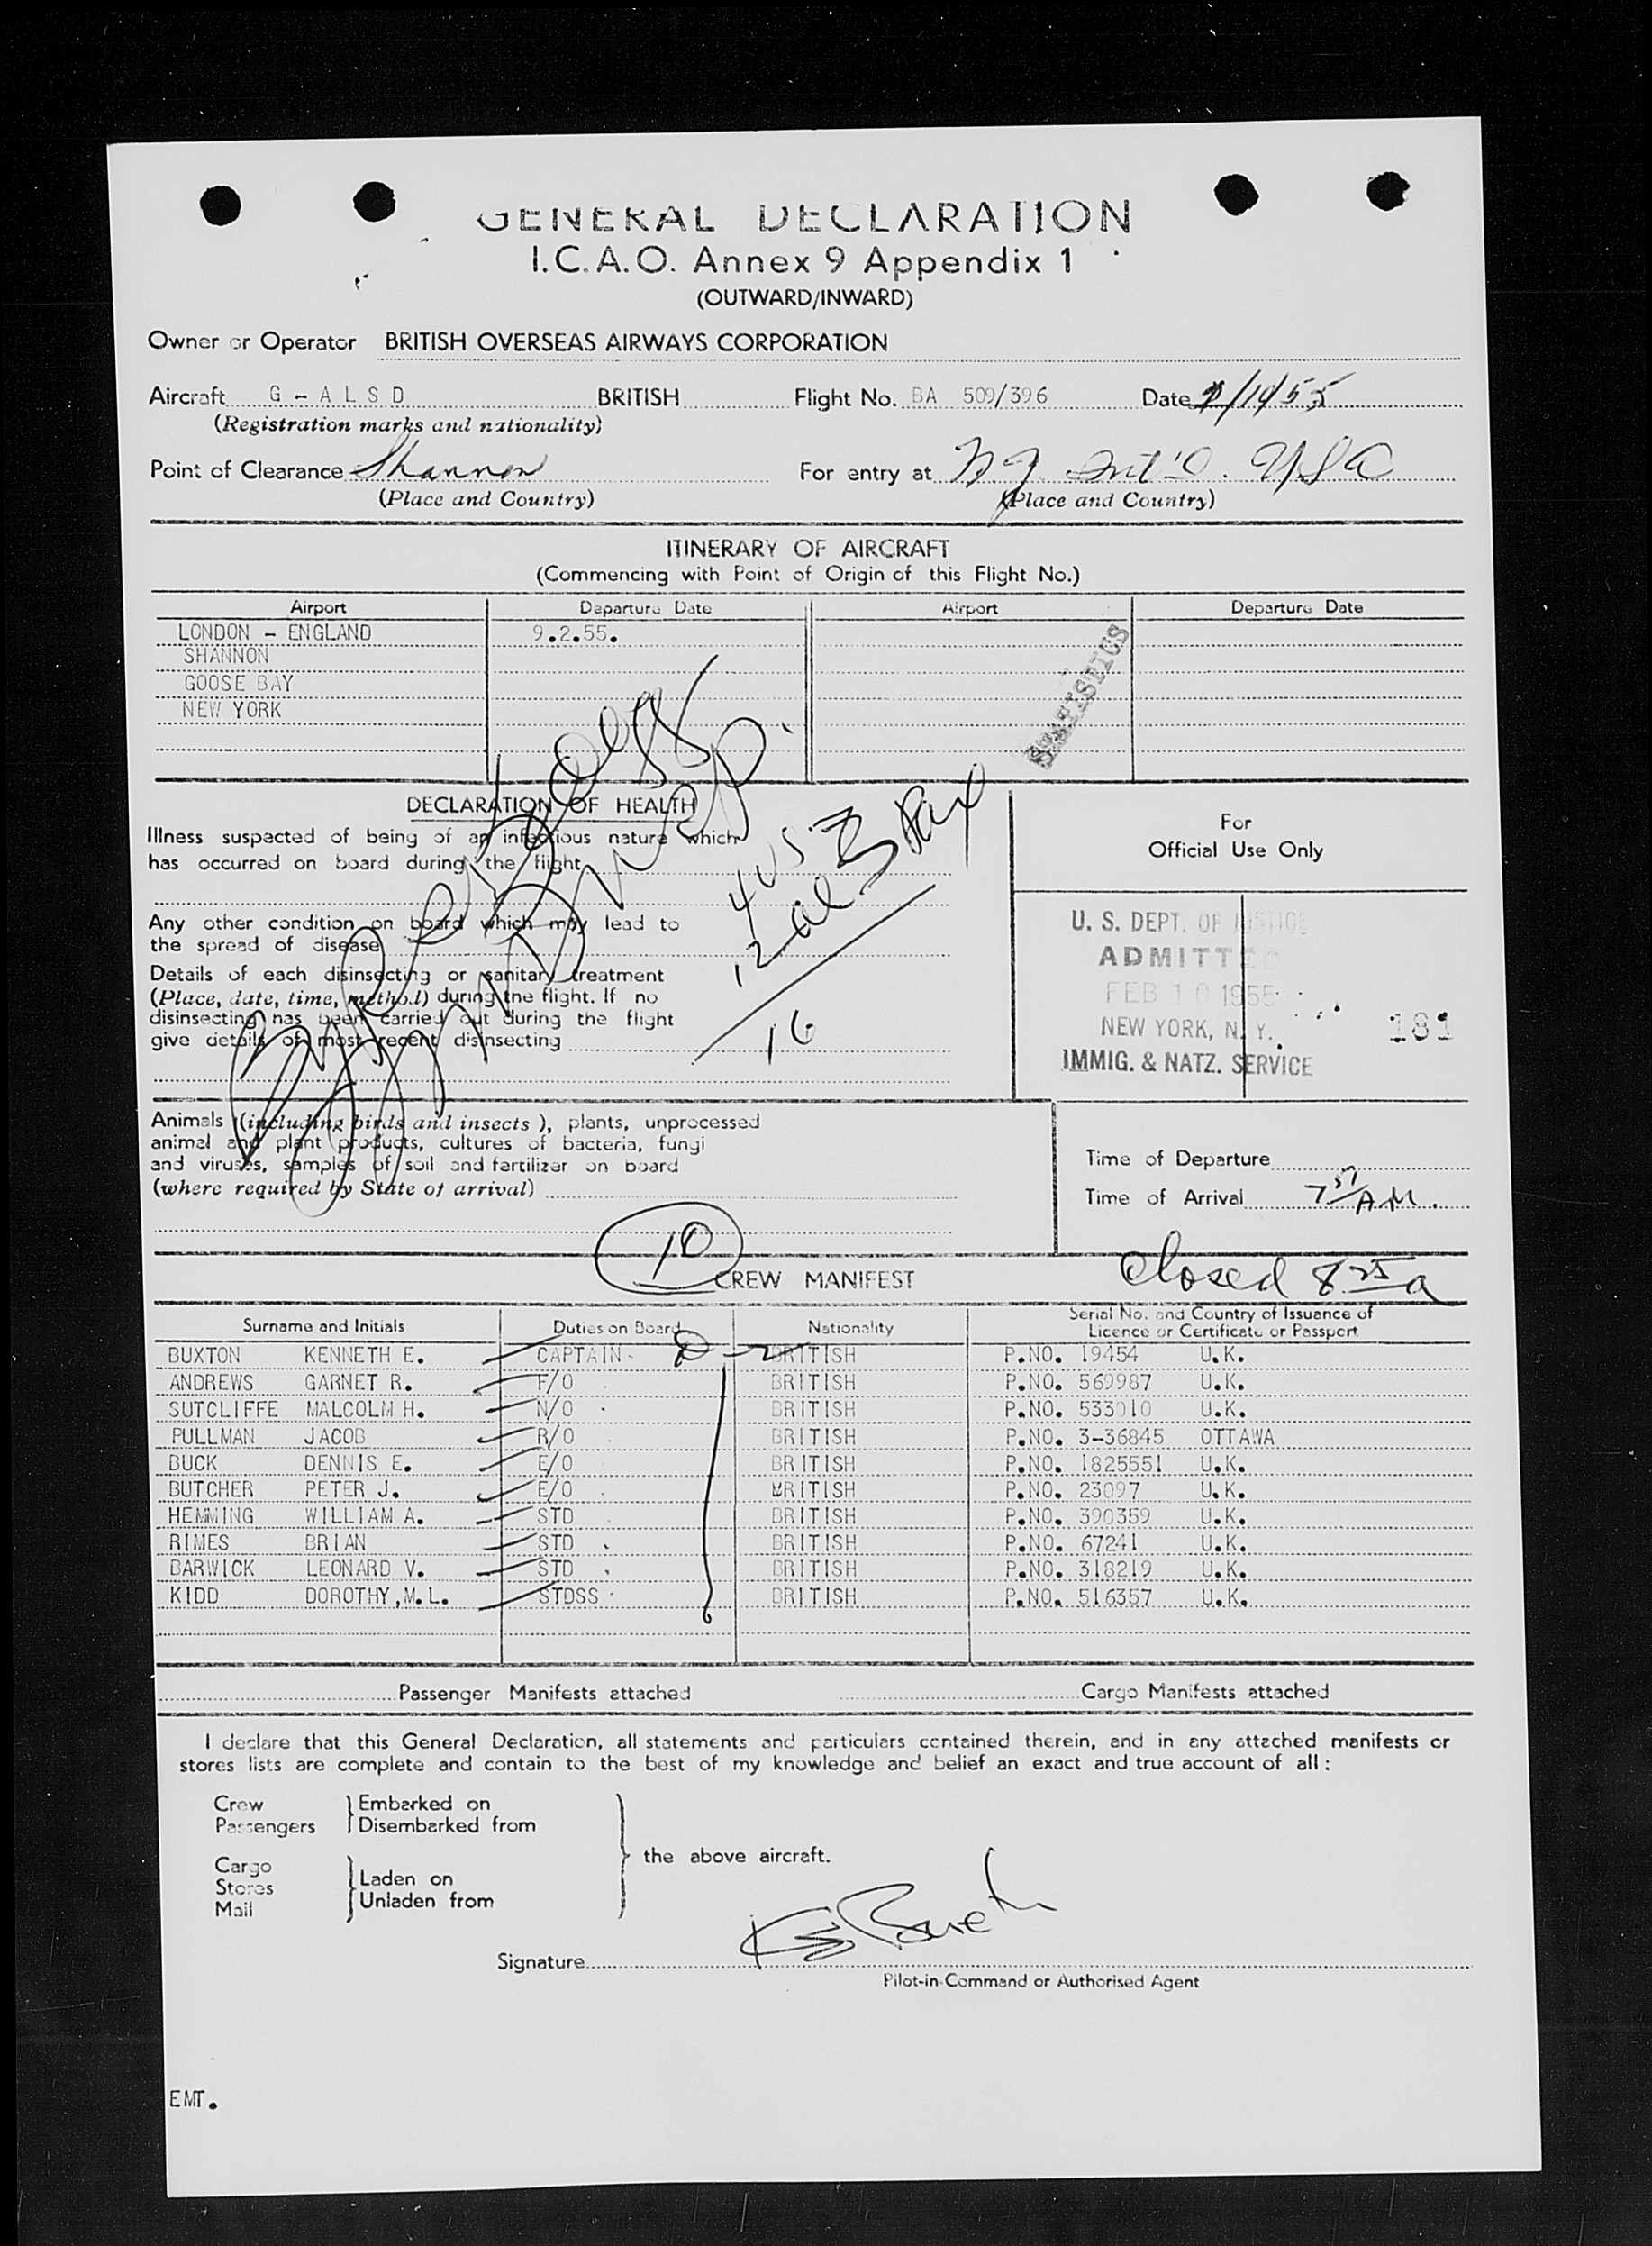 GENERAL DECLARATION
I.C.A.O. Annex 9 Appendix 1
(OUTWARD/INWARD)
Owner or Operator BRITISH OVERSEAS AIRWAYS CORPORATION
Aircraft G - A L S D BRITISH Flight No. BA 509/396 Date /10/55
(Registration marks and nationality)
Point of Clearance Shannon For entry at N.Y. Int'l. USA
(Place and Country) (Place and Country)
ITINERARY OF AIRCRAFT
(Commencing with Point of Origin of this Flight No.)
Airport Departure Date Airport Departure Date
LONDON - ENGLAND 9.2.55.
SHANNON
GOOSE BAY
NEW YORK
STATISTICS
DECLARATION OF HEALTH
Illness suspected of being of an infectious nature which
has occurred on board during the flight
Any other condition on board which may lead to
the spread of disease
Details of each disinsecting or sanitary treatment
(Place, date, time, method) during the flight. If no
disinsecting has been carried out during the flight
give details of most recent disinsecting
4 US
12 al
16
For
Official Use Only
U. S. DEPT. OF JUSTICE
ADMITTED
FEB 10 1955
NEW YORK, N. Y.
181
IMMIG. & NATZ. SERVICE
Animals (including birds and insects), plants, unprocessed
animal and plant products, cultures of bacteria, fungi
and viruses, samples of soil and fertilizer on board
(where required by State of arrival)
Time of Departure
Time of Arrival 7 51 AM.
10
CREW MANIFEST
Closed 8 25 a
Surname and Initials Duties on Board Nationality Serial No. and Country of Issuance of Licence or Certificate or Passport
BUXTON KENNETH E. CAPTAIN BRITISH P.NO. 19454 U.K.
ANDREWS GARNET R. F/O BRITISH P.NO. 569987 U.K.
SUTCLIFFE MALCOLM H. N/O BRITISH P.NO. 533010 U.K.
PULLMAN JACOB R/O BRITISH P.NO. 3-36845 OTTAWA
BUCK DENNIS E. E/O BRITISH P.NO. 1825551 U.K.
BUTCHER PETER J. E/O BRITISH P.NO. 23097 U.K.
HEMMING WILLIAM A. STD BRITISH P.NO. 390359 U.K.
RIMES BRIAN STD BRITISH P.NO. 67241 U.K.
BARWICK LEONARD V. STD BRITISH P.NO. 318219 U.K.
KIDD DOROTHY,M.L. STDSS BRITISH P.NO. 516357 U.K.
Passenger Manifests attached Cargo Manifests attached
I declare that this General Declaration, all statements and particulars contained therein, and in any attached manifests or
stores lists are complete and contain to the best of my knowledge and belief an exact and true account of all:
Crew Embarked on
Passengers Disembarked from
the above aircraft.
Cargo
Stores Laden on
Mail Unladen from
Signature
Pilot-in-Command or Authorised Agent
EMT.